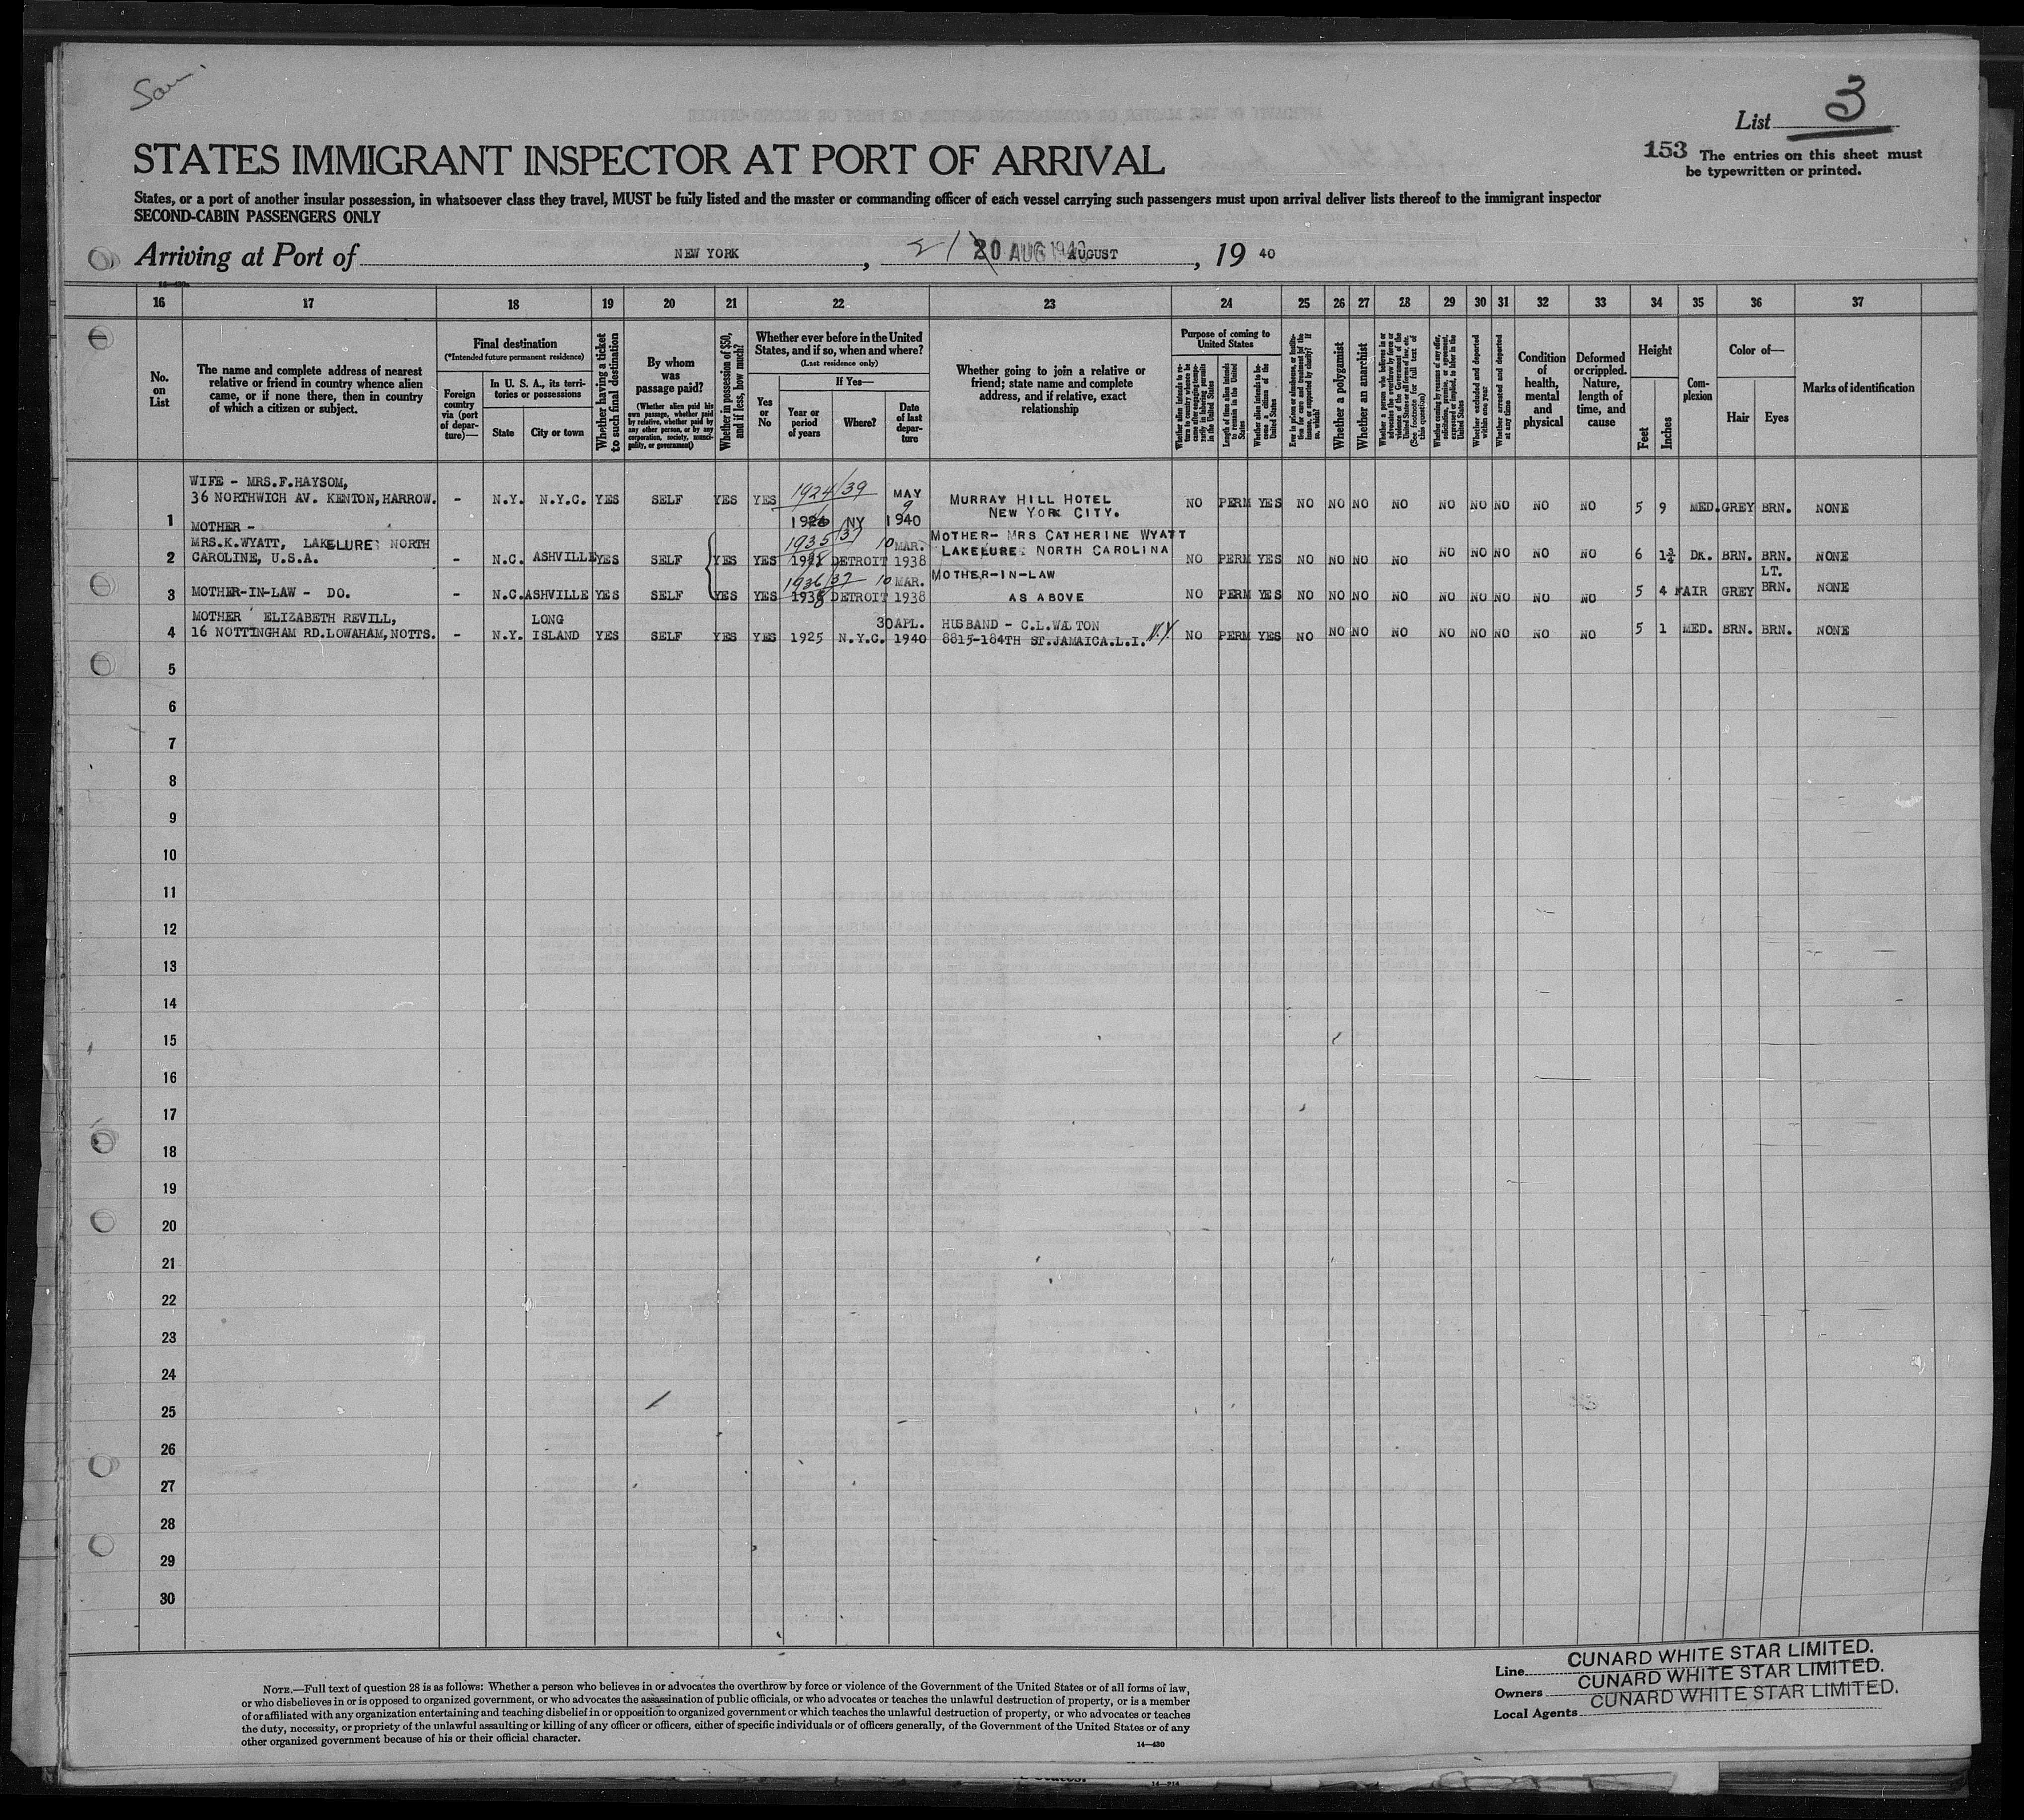 Sau.
List 3
STATES IMMIGRANT INSPECTOR AT PORT OF ARRIVAL
153 The entries on this sheet must
be typewritten or printed.
States, or a port of another insular possession, in whatsoever class they travel, MUST be fully listed and the master or commanding officer of each vessel carrying such passengers must upon arrival deliver lists thereof to the immigrant inspector
SECOND-CABIN PASSENGERS ONLY
Arriving at Port of NEW YORK, 21 20 AUG 1940 AUGUST, 19 40
16 17 18 19 20 21 22 23 24 25 26 27 28 29 30 31 32 33 34 35 36 37
No.
on
List
The name and complete address of nearest
relative or friend in country whence alien
came, or if none there, then in country
of which a citizen or subject.
Final destination
(*Intended future permanent residence)
Foreign
country
via (port
of depar-
ture)—
In U. S. A., its terri-
tories or possessions
State
City or town
Whether having a ticket
to such final destination
By whom
was
passage paid?
(Whether alien paid his
own passage, whether paid
by relative, whether paid by
any other person, or by any
corporation, society, munici-
pality, or government)
Whether in possession of $50,
and if less, how much?
Whether ever before in the United
States, and if so, when and where?
(Last residence only)
Yes
or
No
If Yes—
Year or
period
of years
Where?
Date
of last
depar-
ture
Whether going to join a relative or
friend; state name and complete
address, and if relative, exact
relationship
Purpose of coming to
United States
Length of time alien intends
to remain in the United
States
Whether alien intends to be-
come a citizen of the
United States
Whether a polygamist
Whether an anarchist
Whether excluded and deported
within one year
Whether arrested and deported
at any time
Condition
of
health,
mental
and
physical
Deformed
or crippled.
Nature,
length of
time, and
cause
Height
Feet
Inches
Com-
plexion
Color of—
Hair
Eyes
Marks of identification
WIFE - MRS.F.HAYSOM,
36 NORTHWICH AV. KENTON, HARROW. - N.Y. N.Y.C. YES SELF YES YES 1924/39 NY MAY 9 1940 MURRAY HILL HOTEL
NEW YORK CITY. NO PERM YES NO NO NO NO NO NO NO NO NO 5 9 MED. GREY BRN. NONE
1
MOTHER -
MRS.K.WYATT, LAKELURE: NORTH
2 CAROLINE, U.S.A. - N.C. ASHVILLE YES SELF YES YES 1935/37 DETROIT 10 MAR. 1938 MOTHER- MRS CATHERINE WYATT
LAKELURE: NORTH CAROLINA NO PERM YES NO NO NO NO NO NO NO NO NO 6 1¾ DK. BRN. BRN. NONE
3 MOTHER-IN-LAW - DO. - N.C. ASHVILLE YES SELF YES YES 1936/37 DETROIT 10 MAR. 1938 MOTHER-IN-LAW
AS ABOVE NO PERM YES NO NO NO NO NO NO NO NO NO 5 4 FAIR GREY LT. BRN. NONE
MOTHER ELIZABETH REVILL,
4 16 NOTTINGHAM RD.LOWAHAM, NOTTS. - N.Y. LONG ISLAND YES SELF YES YES 1925 N.Y.C. 30 APL. 1940 HUSBAND - C.L.WALTON
8815-184TH ST.JAMAICA.L.I. N.Y. NO PERM YES NO NO NO NO NO NO NO NO NO 5 1 MED. BRN. BRN. NONE
5
6
7
8
9
10
11
12
13
14
15
16
17
18
19
20
21
22
23
24
25
26
27
28
29
30
NOTE.—Full text of question 28 is as follows: Whether a person who believes in or advocates the overthrow by force or violence of the Government of the United States or of all forms of law,
or who disbelieves in or is opposed to organized government, or who advocates the assassination of public officials, or who advocates or teaches the unlawful destruction of property, or is a member
of or affiliated with any organization entertaining and teaching disbelief in or opposition to organized government or which teaches the unlawful destruction of property, or who advocates or teaches
the duty, necessity, or propriety of the unlawful assaulting or killing of any officer or officers, either of specific individuals or of officers generally, of the Government of the United States or of any
other organized government because of his or their official character.
14—430
Line CUNARD WHITE STAR LIMITED.
Owners CUNARD WHITE STAR LIMITED.
Local Agents CUNARD WHITE STAR LIMITED.